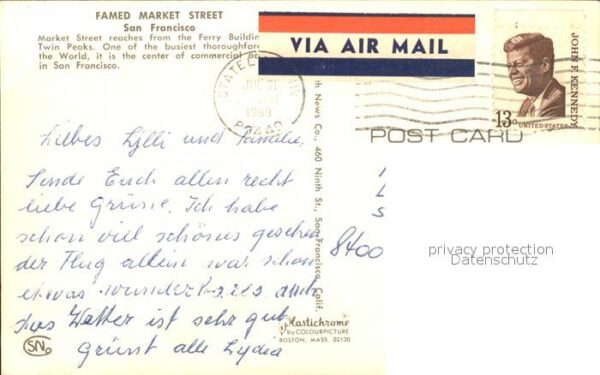 FAMED MARKET STREET
San Francisco
Market Street reaches from the Ferry Buildin
Twin Peaks. One of the busiest thoroughfar
the World, it is the center of commercial ac
in San Francisco.
VIA AIR MAIL
JOHN F. KENNEDY
13c UNITED STATES
1969
POST CARD
Liebes Lylli und Familie,
Sende Euch allen recht
liebe Grüsse. Ich habe
schon viel schönes gesehen
der Flug allein war schon
etwas wunderbares auch
das Wetter ist sehr gut
Grüsst alle Lydia
h News Co., 460 Ninth St., San Francisco, Calif.
8400
privacy protection
Datenschutz
Plastichrome
by COLOURPICTURE
BOSTON, MASS. 02130
SN